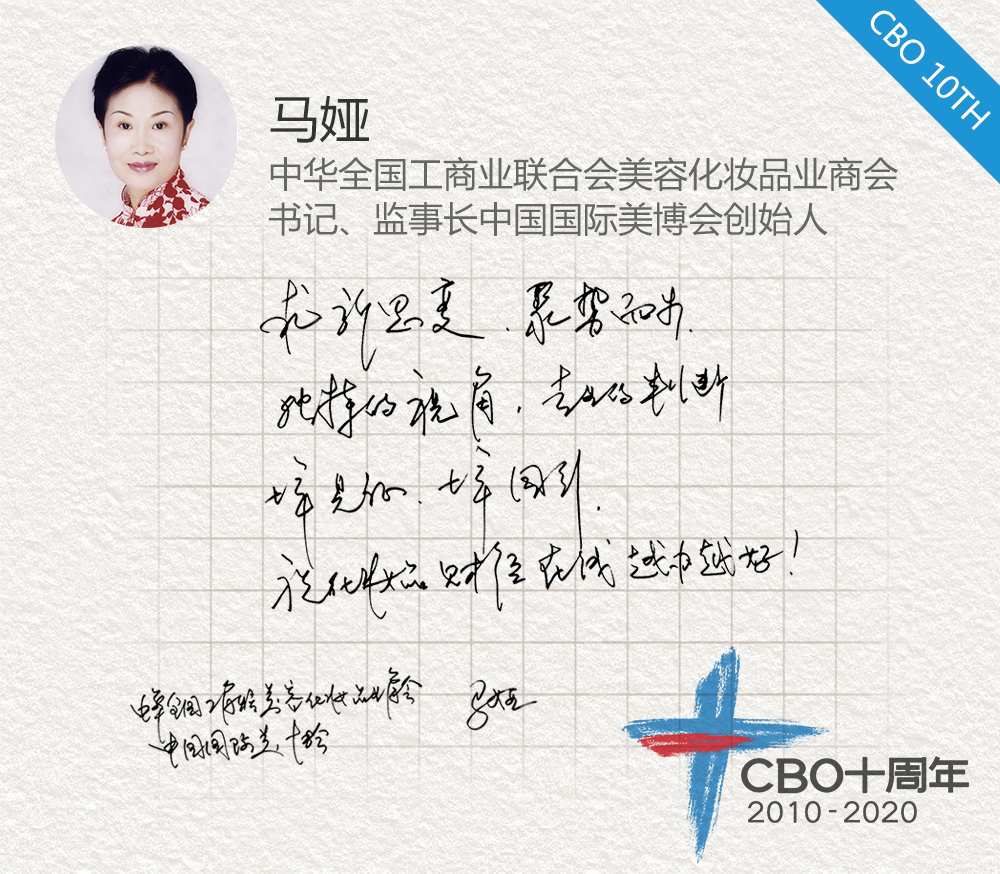 CBO 10TH
马娅
中华全国工商业联合会美容化妆品业商会
书记、监事长中国国际美博会创始人
求新思变、聚势而为.
独特的视角，专业的判断
城 国引.
祝化妆品财经在线越办越好！
中华全国工商联美容化妆品业商会 马娅
中国国际美博会
CBO十周年
2010-2020